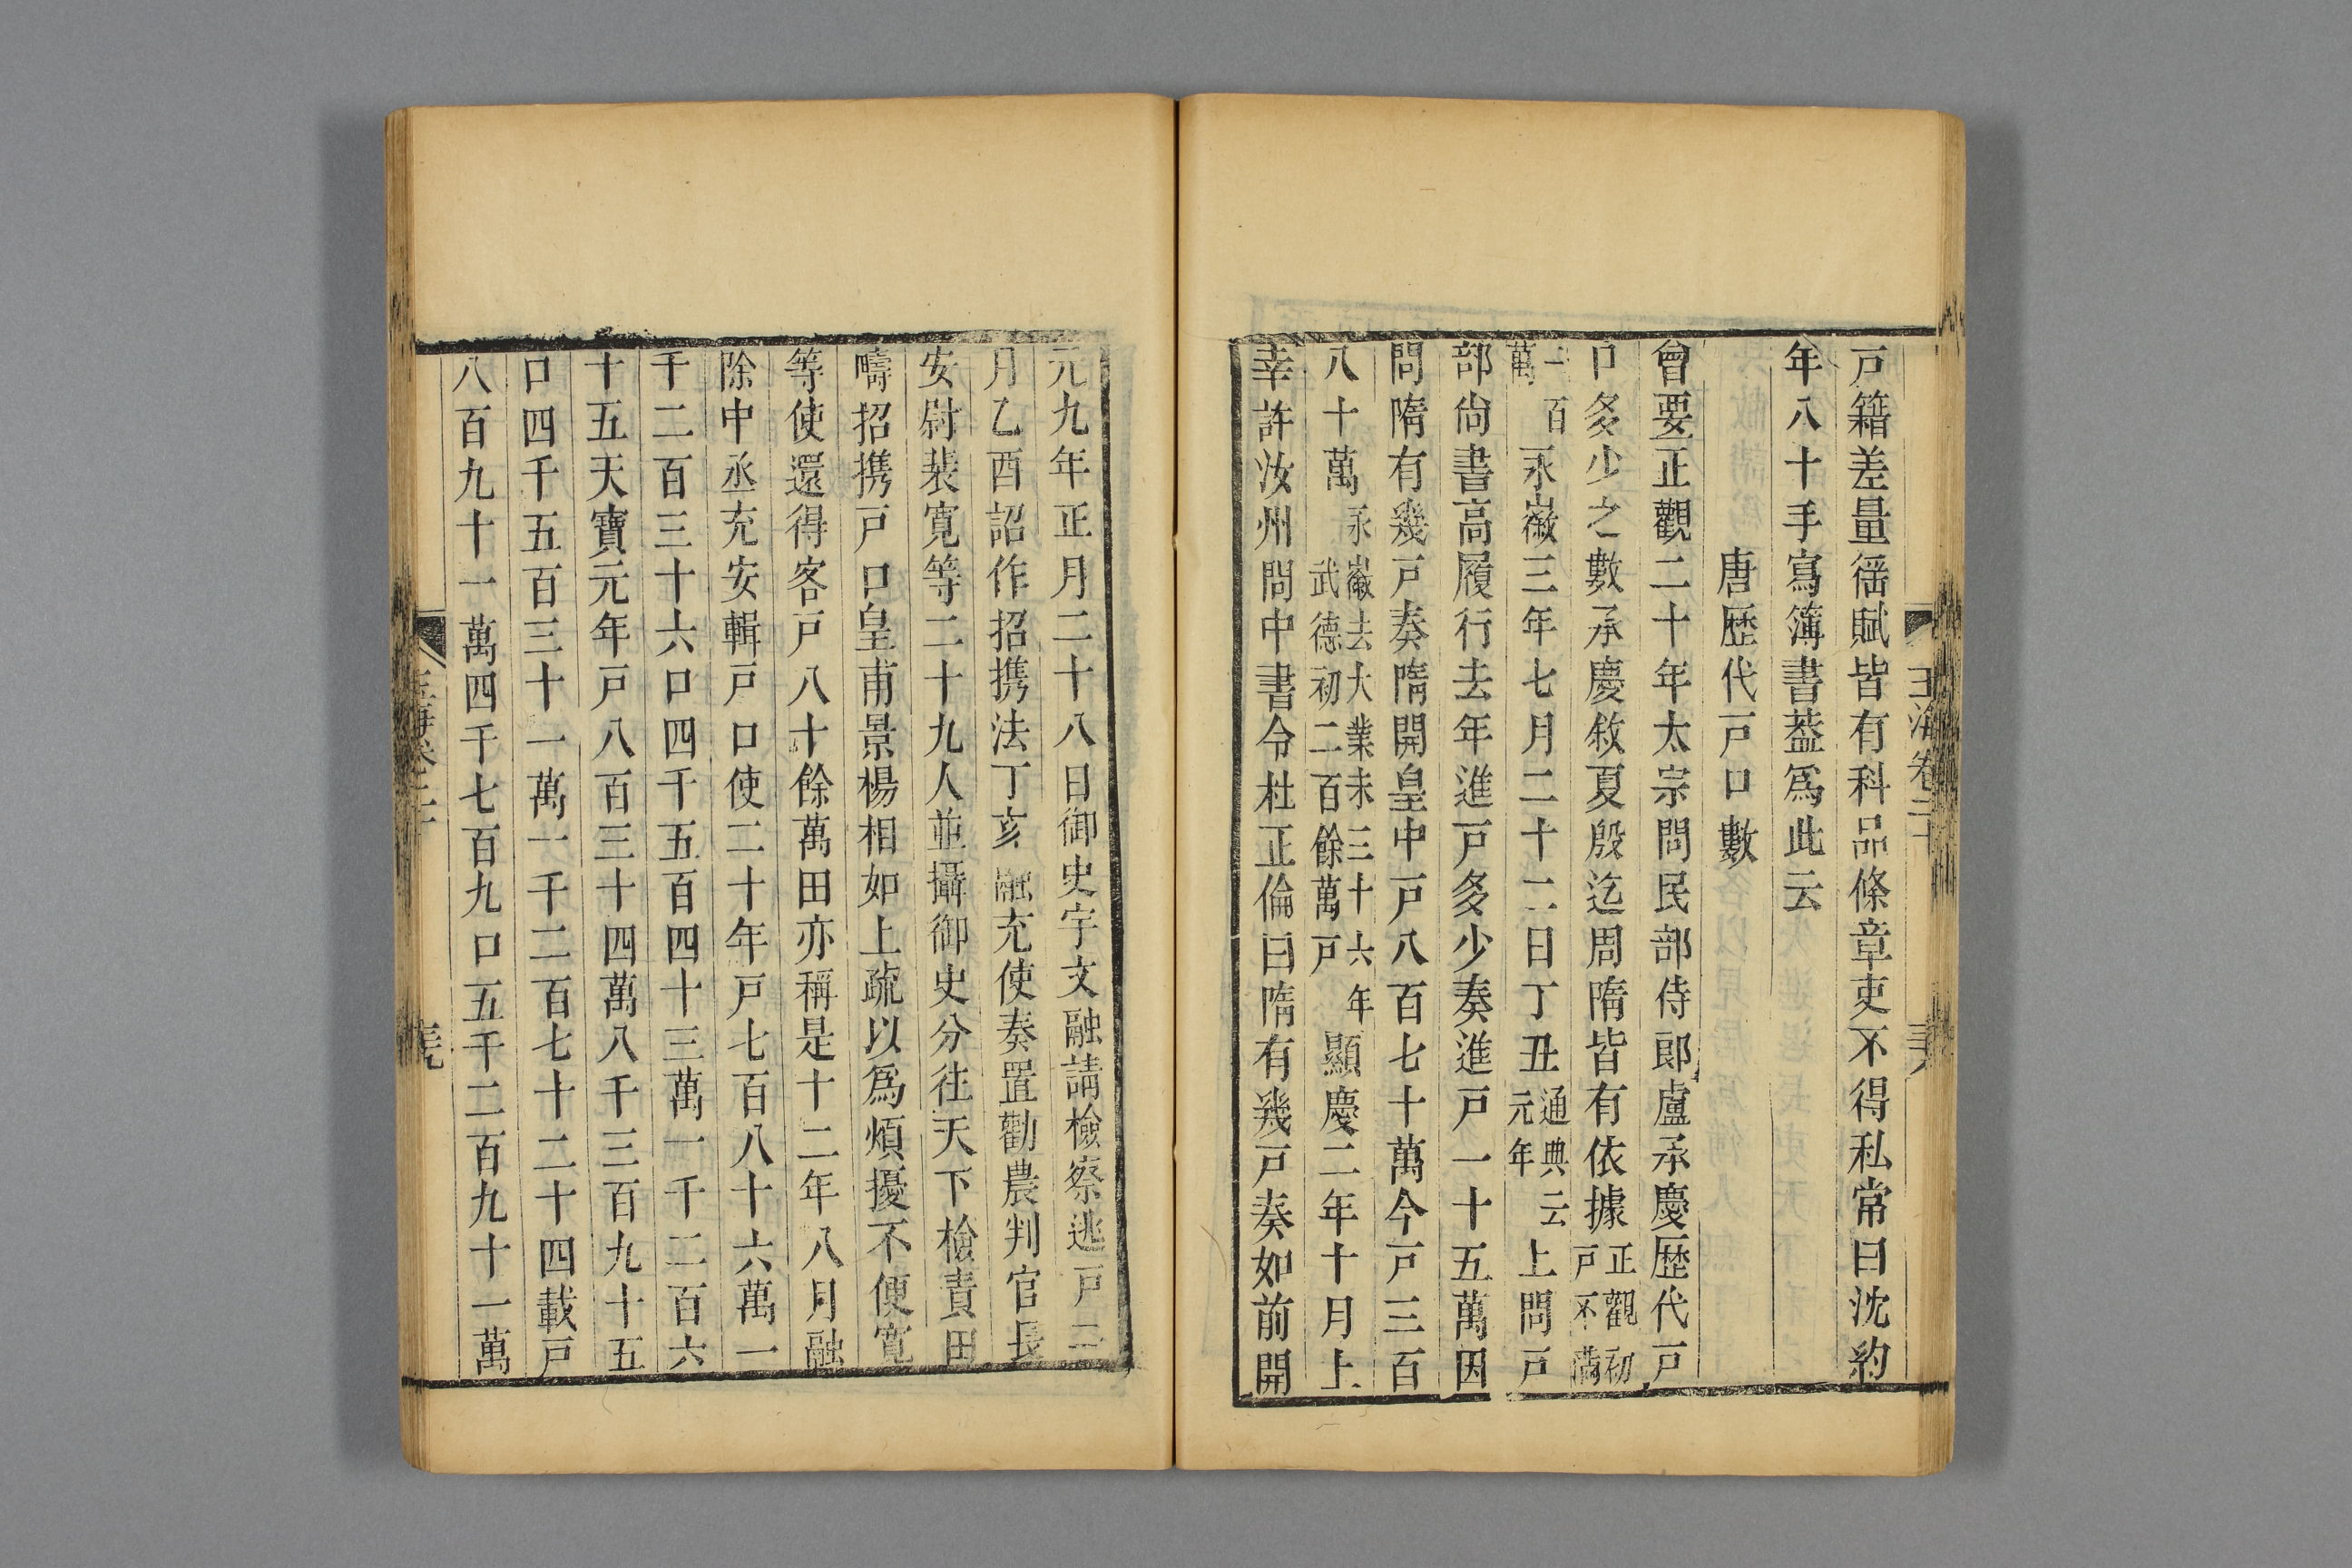 戸籍差量徭賦皆有科品條章吏不得私常曰沈約
年八十手寫簿書葢爲此云
唐歷代戸口數
會要正觀二十年太宗問民部侍郎盧承慶歷代戸
口多少之數承慶敘夏殷迄周隋皆有依據正觀初戸不滿
一百萬永徽三年七月二十二日丁丑通典云元年上問戸
部尙書高履行去年進戸多少奏進戸一十五萬因
問隋有幾戸奏隋開皇中戸八百七十萬今戸三百
八十萬永徽去大業末三十六年武德初二百餘萬戸顯慶二年十月上
幸許汝州問中書令杜正倫曰隋有幾戸奏如前開
玉海卷二十
元九年正月二十八日御史宇文融請檢察逃戸二
月乙酉詔作招携法丁亥融充使奏置勸農判官長
安尉裴寬等二十九人並攝御史分往天下檢責田
疇招携戸口皇甫景楊相如上疏以爲煩擾不便寬
等使還得客戸八十餘萬田亦稱是十二年八月融
除中丞充安輯戸口使二十年戸七百八十六萬一
千二百三十六口四千五百四十三萬一千二百六
十五天寶元年戸八百三十四萬八千三百九十五
口四千五百三十一萬一千二百七十二十四載戸
八百九十一萬四千七百九口五千二百九十一萬